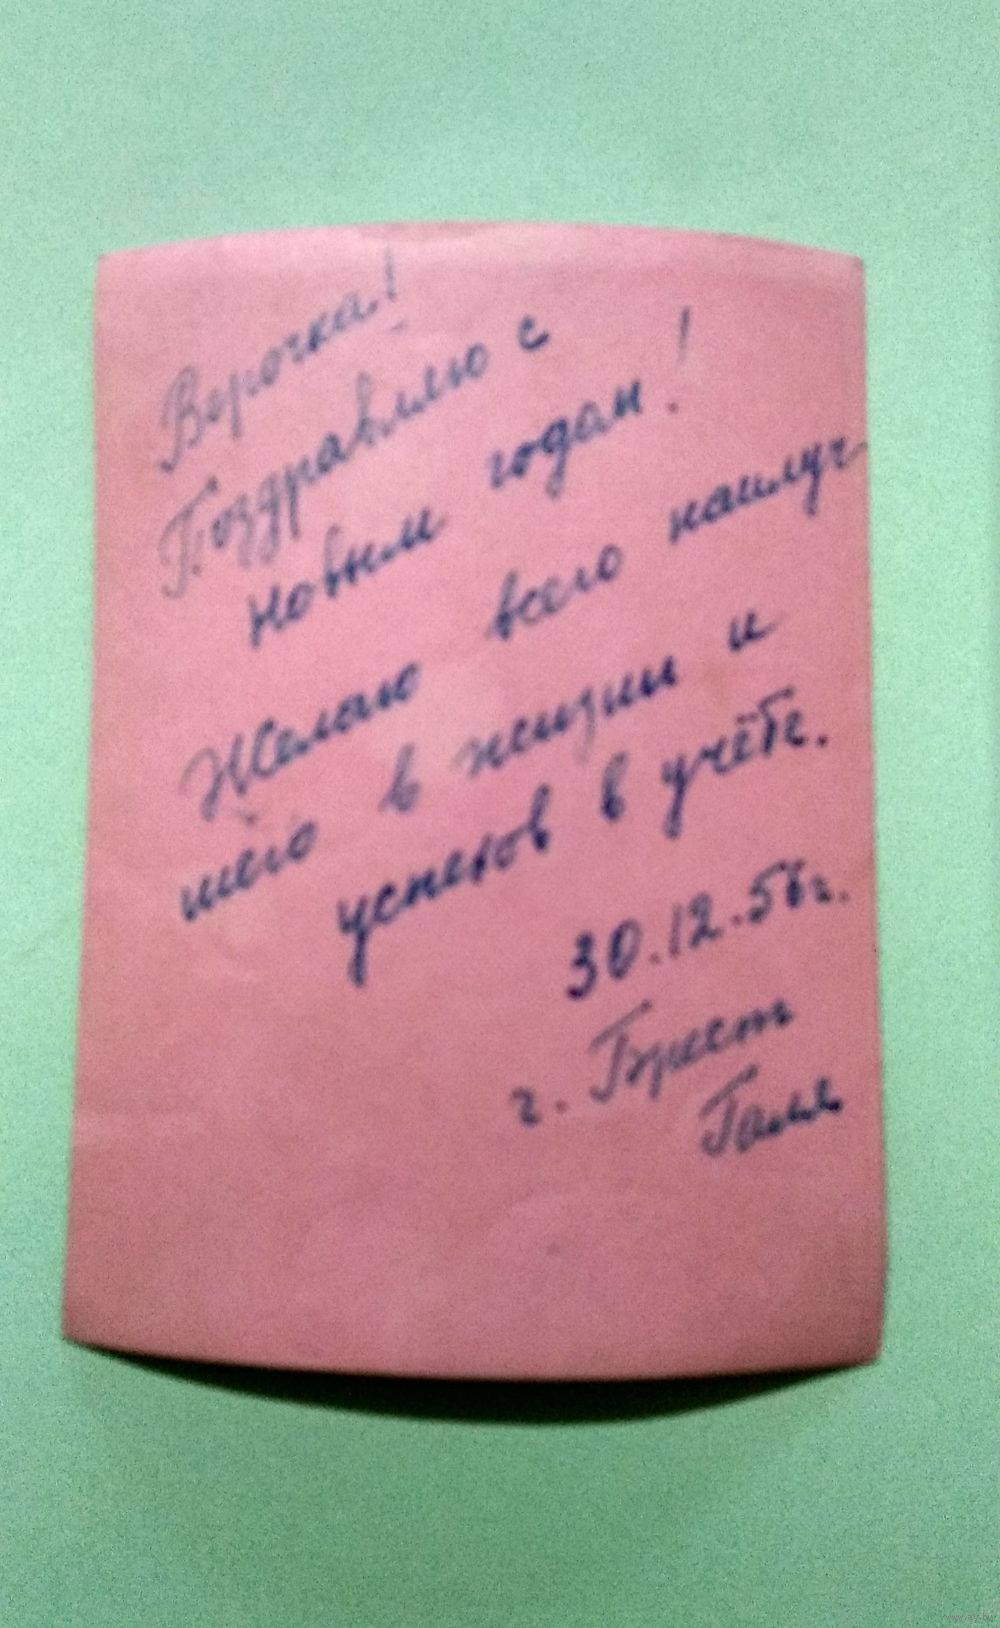 Верочка!
Поздравляю с
новым годом!
Желаю всего наилуч-
шего в жизни и
успехов в учёбе.
30.12.56г.
г. Брест
Галя
www.ay.by